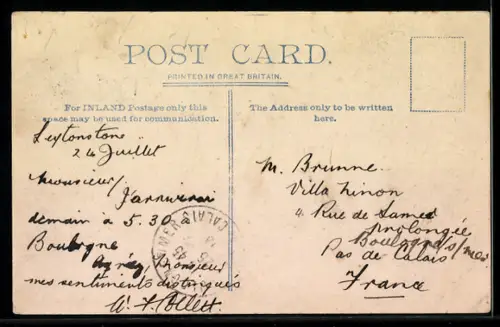 POST CARD.
PRINTED IN GREAT BRITAIN.
For INLAND Postage only this
space may be used for communication.
The Address only to be written
here.
Leytonstone
24 Juillet
Monsieur/
J'arriverai
demain à 5.30 à
Boulogne
Agréez, Monsieur
mes sentiments distingués
CALAIS
M. Brunne
Villa Ninon
4 Rue de
prolongée
Boulogne s/mer
Pas de Calais
France